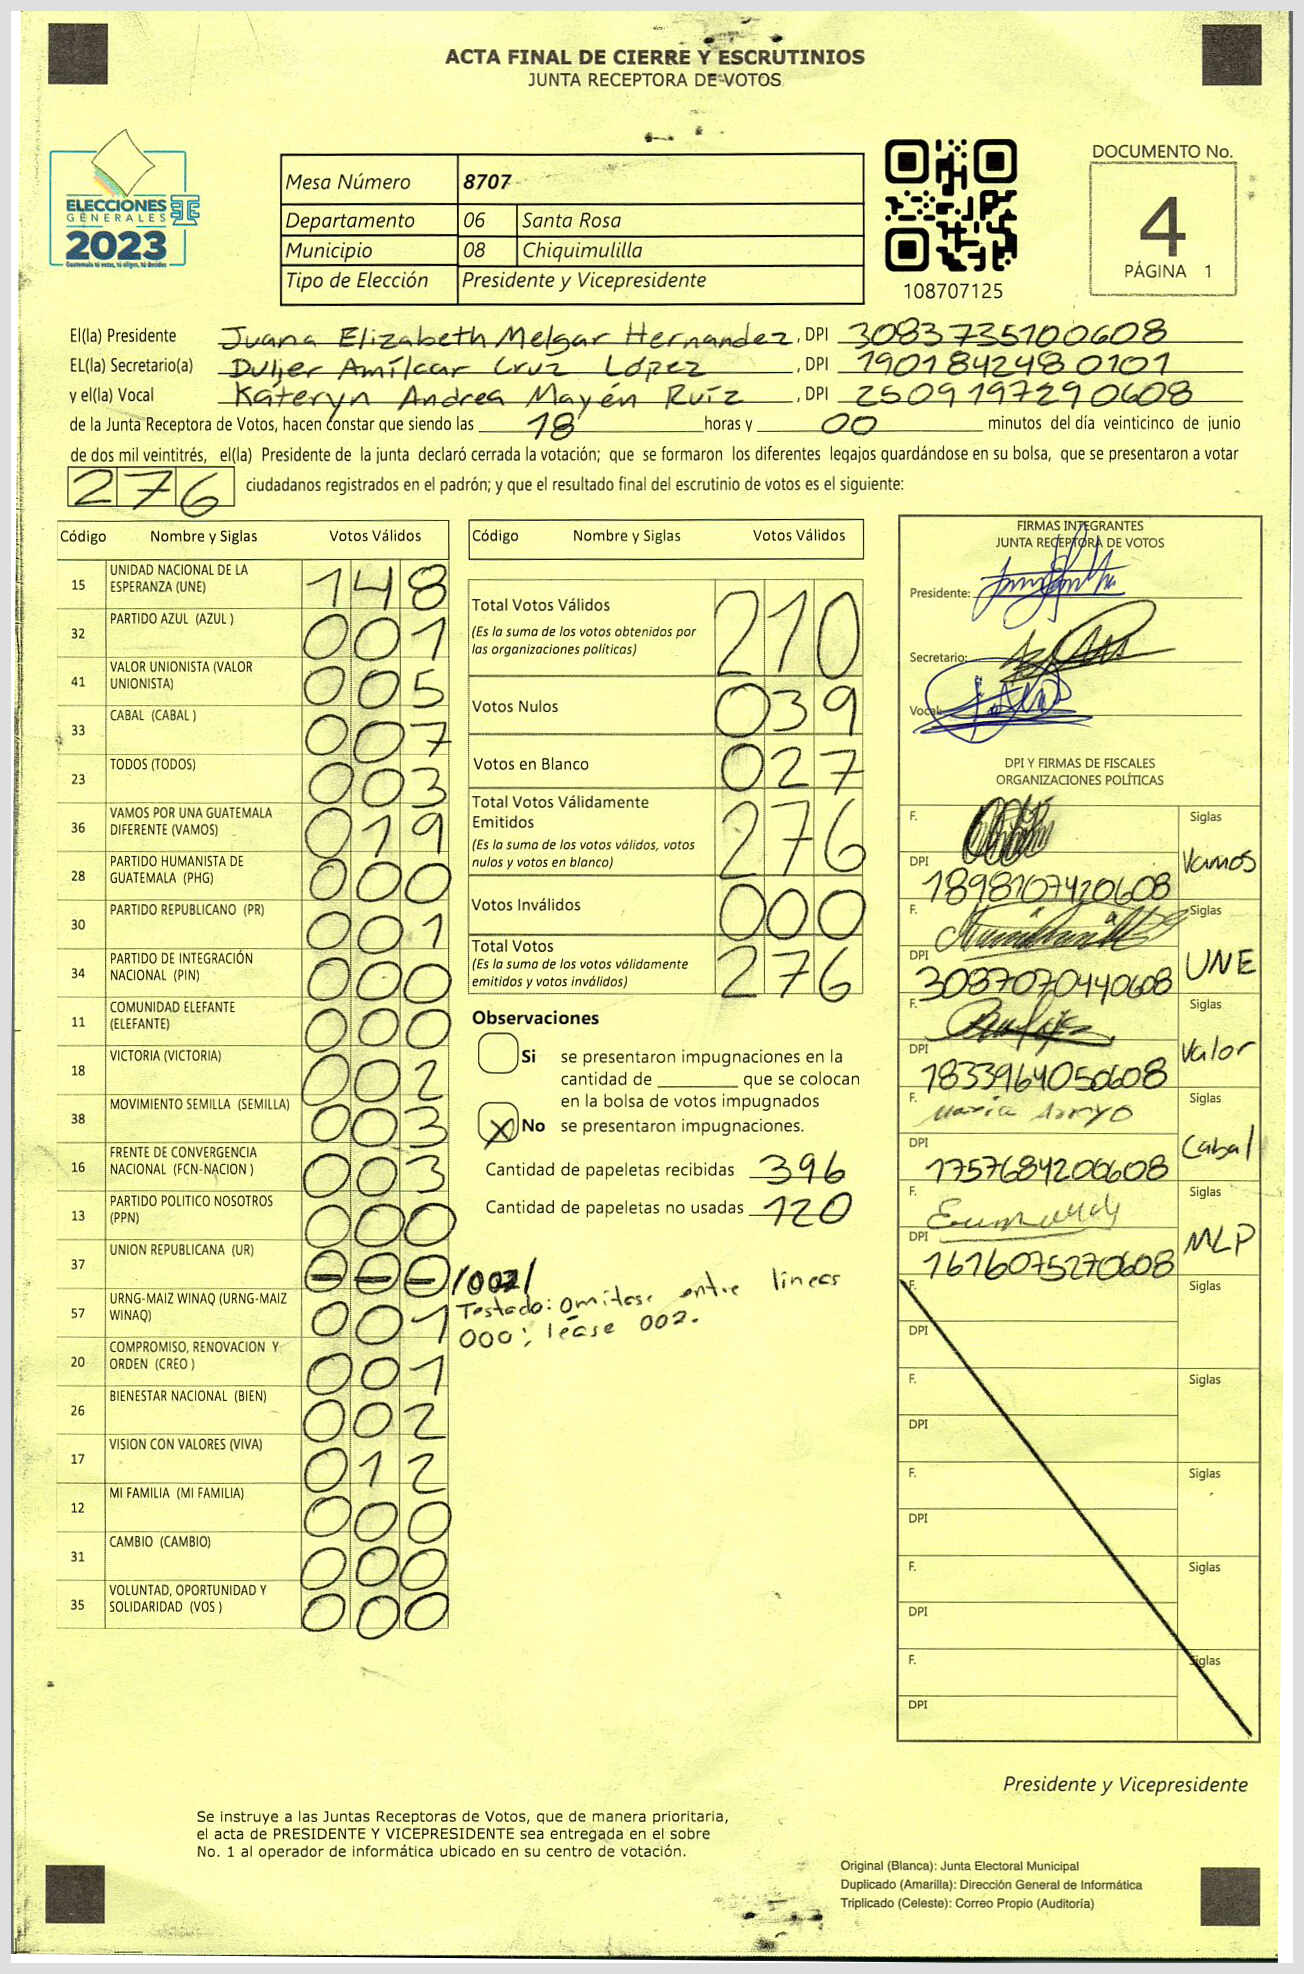 ACTA FINAL DE CIERRE Y ESCRUTINIOS
JUNTA RECEPTORA DE VOTOS
ELECCIONES
GENERALES
2023
Guatemala tú votas, tú eliges, tú decides
Mesa Número 8707
Departamento 06 Santa Rosa
Municipio 08 Chiquimulilla
Tipo de Elección Presidente y Vicepresidente
108707125
DOCUMENTO No.
4
PÁGINA 1
El(la) Presidente Juana Elizabeth Melgar Hernandez, DPI 3083735100608
EL(la) Secretario(a) Amílcar Cruz López, DPI 1901842480101
y el(la) Vocal Káteryn Andrea Mayén Ruíz, DPI 2509197290608
de la Junta Receptora de Votos, hacen constar que siendo las 18 horas y 00 minutos del día veinticinco de junio
de dos mil veintitrés, el(la) Presidente de la junta declaró cerrada la votación; que se formaron los diferentes legajos guardándose en su bolsa, que se presentaron a votar
276 ciudadanos registrados en el padrón; y que el resultado final del escrutinio de votos es el siguiente:
Código Nombre y Siglas Votos Válidos
15 UNIDAD NACIONAL DE LA ESPERANZA (UNE) 148
32 PARTIDO AZUL (AZUL ) 001
41 VALOR UNIONISTA (VALOR UNIONISTA) 005
33 CABAL (CABAL ) 007
23 TODOS (TODOS) 003
36 VAMOS POR UNA GUATEMALA DIFERENTE (VAMOS) 019
28 PARTIDO HUMANISTA DE GUATEMALA (PHG) 000
30 PARTIDO REPUBLICANO (PR) 001
34 PARTIDO DE INTEGRACIÓN NACIONAL (PIN) 000
11 COMUNIDAD ELEFANTE (ELEFANTE) 000
18 VICTORIA (VICTORIA) 002
38 MOVIMIENTO SEMILLA (SEMILLA) 003
16 FRENTE DE CONVERGENCIA NACIONAL (FCN-NACION ) 003
13 PARTIDO POLITICO NOSOTROS (PPN) 000
37 UNION REPUBLICANA (UR) 000 /002/
Testado: omitase entre lineas
000; léase 002.
57 URNG-MAIZ WINAQ (URNG-MAIZ WINAQ) 001
20 COMPROMISO, RENOVACION Y ORDEN (CREO ) 001
26 BIENESTAR NACIONAL (BIEN) 002
17 VISION CON VALORES (VIVA) 012
12 MI FAMILIA (MI FAMILIA) 000
31 CAMBIO (CAMBIO) 000
35 VOLUNTAD, OPORTUNIDAD Y SOLIDARIDAD (VOS ) 000
Código Nombre y Siglas Votos Válidos
Total Votos Válidos 210
(Es la suma de los votos obtenidos por
las organizaciones politicas)
Votos Nulos 039
Votos en Blanco 027
Total Votos Válidamente
Emitidos 276
(Es la suma de los votos válidos, votos
nulos y votos en blanco)
Votos Inválidos 000
Total Votos 276
(Es la suma de los votos válidamente
emitidos y votos inválidos)
Observaciones
Si se presentaron impugnaciones en la
cantidad de ________ que se colocan
en la bolsa de votos impugnados
X No se presentaron impugnaciones.
Cantidad de papeletas recibidas 396
Cantidad de papeletas no usadas 120
FIRMAS INTEGRANTES
JUNTA RECEPTORA DE VOTOS
Presidente:
Secretario:
Vocal:
DPI Y FIRMAS DE FISCALES
ORGANIZACIONES POLÍTICAS
F. Siglas
DPI 1898107420608 Vamos
F. Siglas
DPI 3087070440608 UNE
F. Siglas
DPI 1833964050608 Valor
F. Maria Arryo Siglas
DPI 1757684200608 Cabal
F. Siglas
DPI 1616075270608 MLP
F. Siglas
DPI
F. Siglas
DPI
F. Siglas
DPI
F. Siglas
DPI
F. Siglas
DPI
Presidente y Vicepresidente
Se instruye a las Juntas Receptoras de Votos, que de manera prioritaria,
el acta de PRESIDENTE Y VICEPRESIDENTE sea entregada en el sobre
No. 1 al operador de informática ubicado en su centro de votación.
Original (Blanca): Junta Electoral Municipal
Duplicado (Amarilla): Dirección General de Informática
Triplicado (Celeste): Correo Propio (Auditoría)